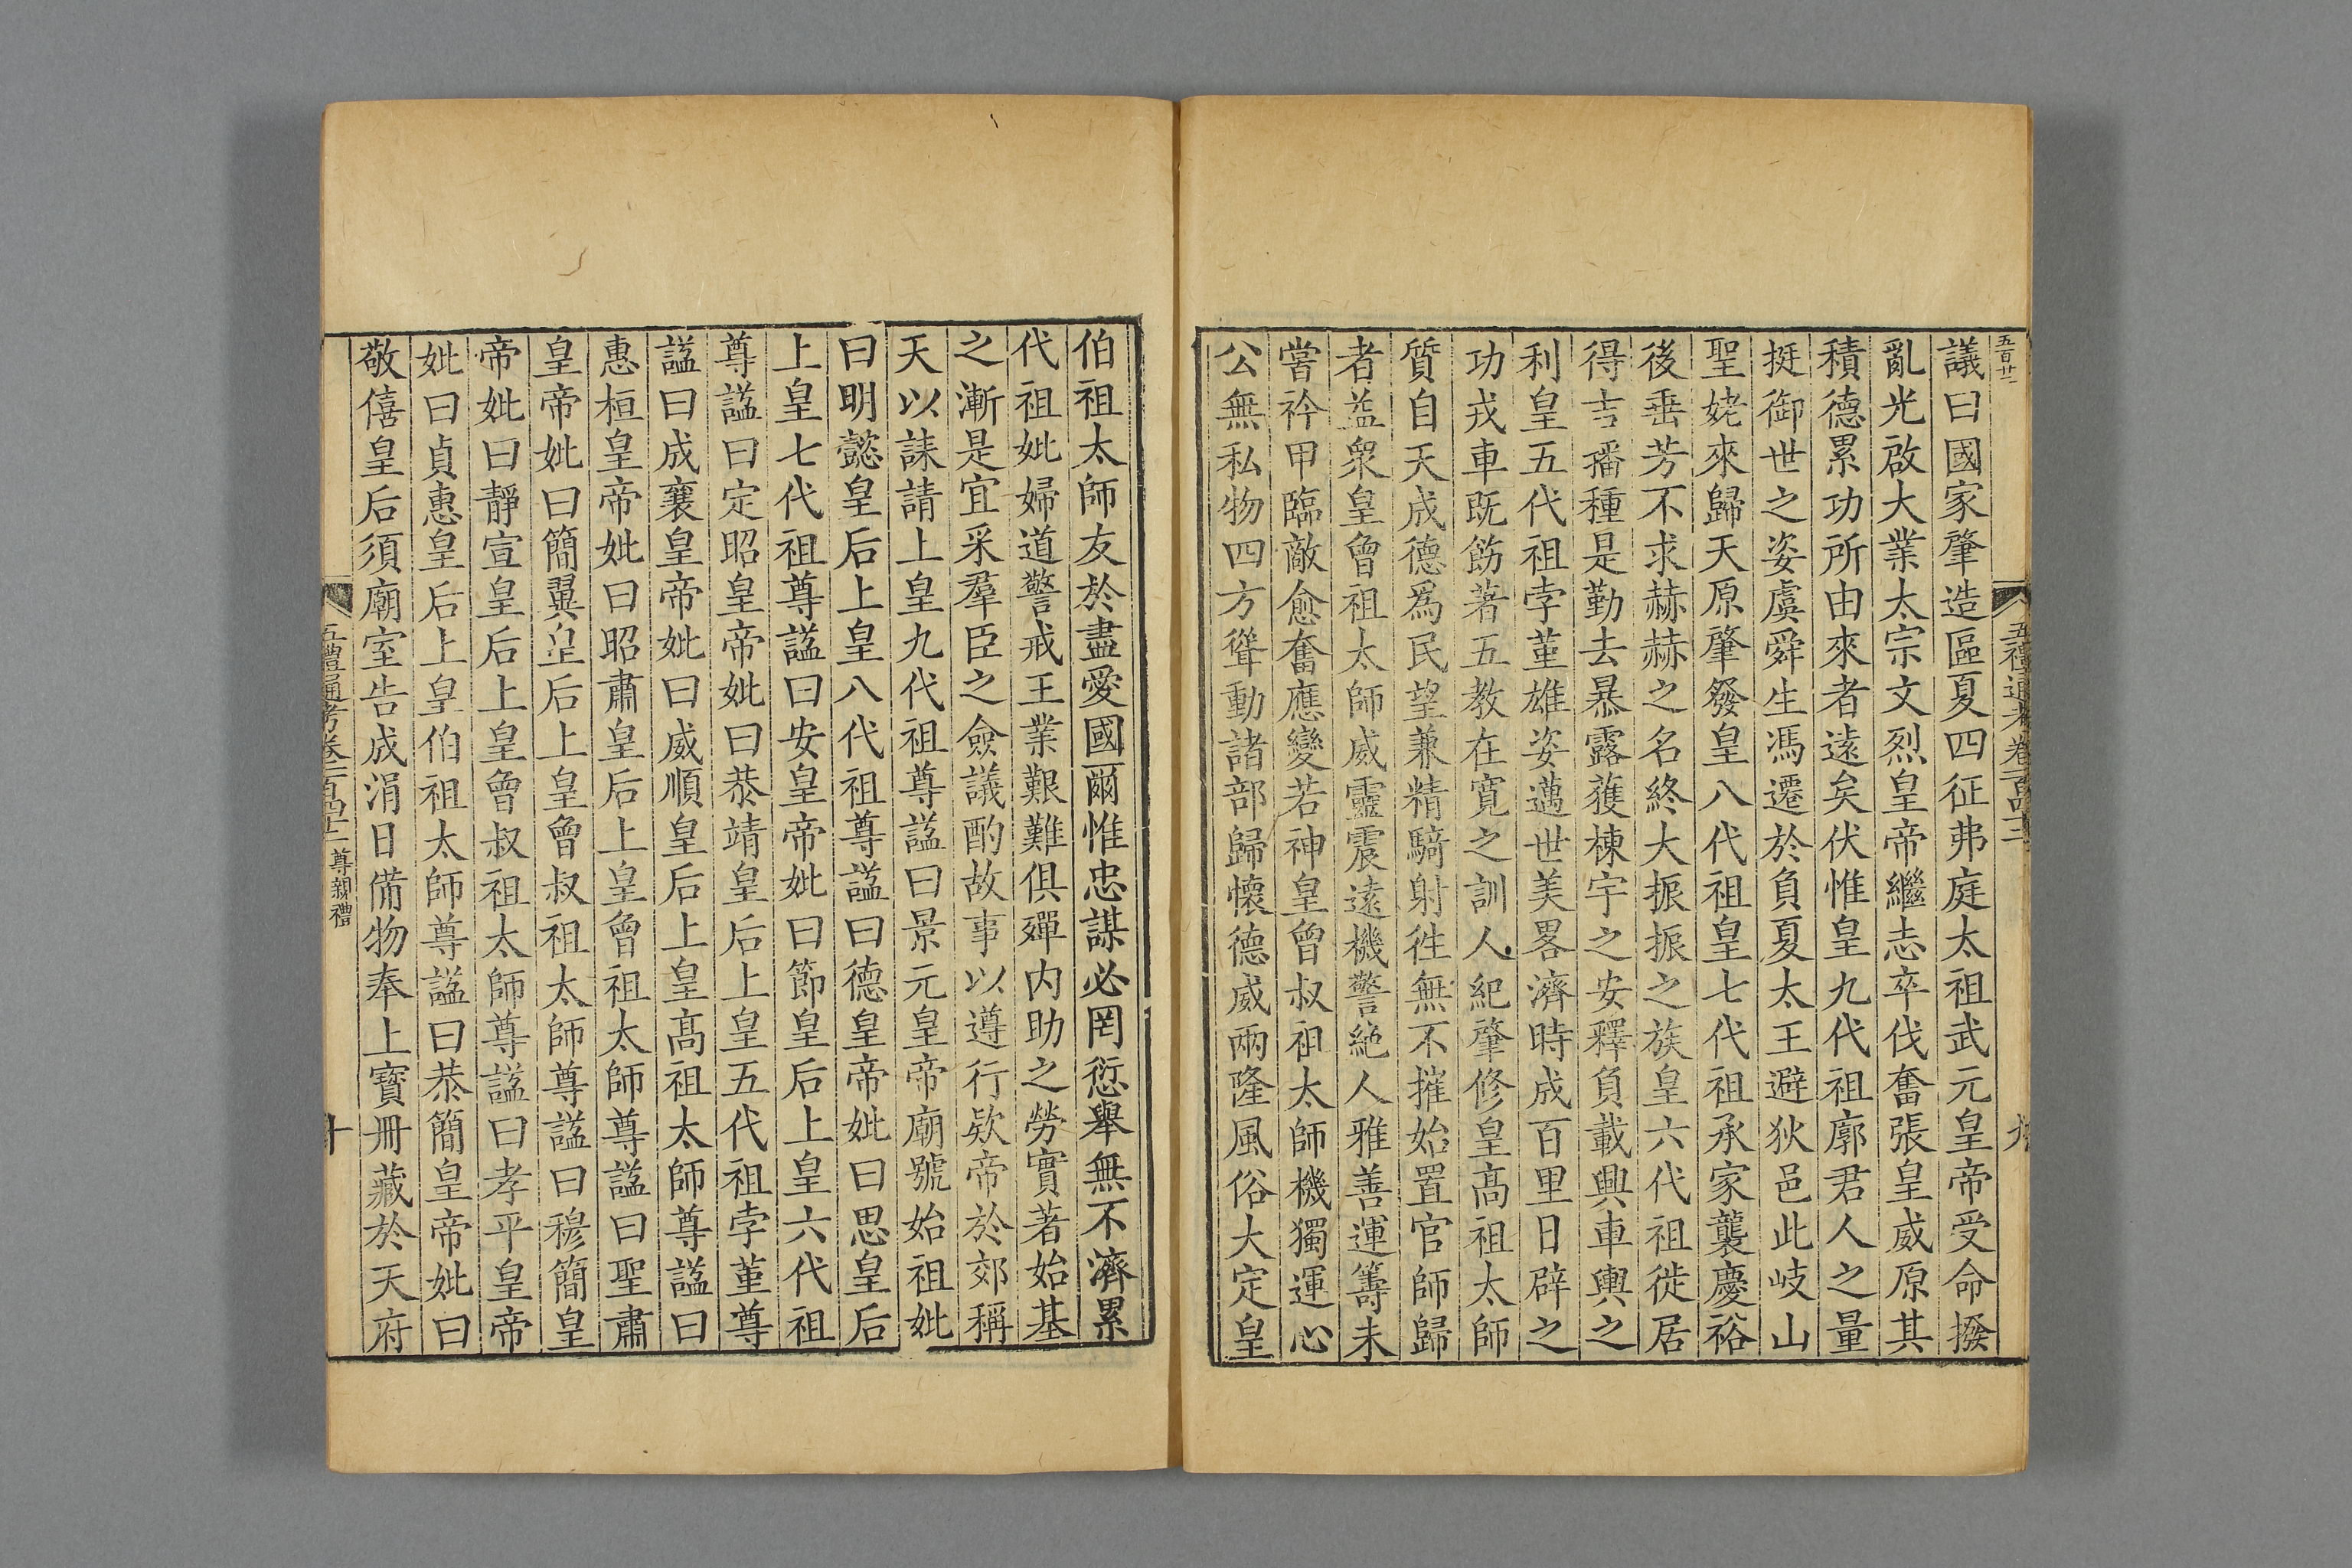 五百廿二
議曰國家肇造區夏四征弗庭太祖武元皇帝受命撥
亂光啟大業太宗文烈皇帝繼志卒伐奮張皇威原其
積德累功所由來者逺矣伏惟皇九代祖廓君人之量
挺御世之姿虞舜生馮遷於負夏太王避狄邑此岐山
聖姥來歸天原肇發皇八代祖皇七代祖承家襲慶裕
後垂芳不求赫赫之名終大振振之族皇六代祖徙居
得吉播種是勤去暴露獲棟宇之安釋負載興車輿之
利皇五代祖孛堇雄姿邁世美畧濟時成百里日辟之
功戎車既飭著五教在寛之訓人紀肇修皇髙祖太師
質自天成德爲民望兼精騎射徃無不摧始置官師歸
者益衆皇曾祖太師威靈震逺機警絶人雅善運籌未
嘗衿甲臨敵愈奮應變若神皇曾叔祖太師機獨運心
公無私物四方聳動諸部歸懷德威兩隆風俗大定皇
五禮通考卷一百四十二
九
伯祖太師友於盡愛國爾惟忠謀必罔愆舉無不濟累
代祖妣婦道警戒王業艱難俱殫内助之勞實著始基
之漸是宜采羣臣之僉議酌故事以遵行欵帝於郊稱
天以誄請上皇九代祖尊諡曰景元皇帝廟號始祖妣
曰明懿皇后上皇八代祖尊諡曰德皇帝妣曰思皇后
上皇七代祖尊諡曰安皇帝妣曰節皇后上皇六代祖
尊諡曰定昭皇帝妣曰恭靖皇后上皇五代祖孛堇尊
諡曰成襄皇帝妣曰威順皇后上皇髙祖太師尊諡曰
惠桓皇帝妣曰昭肅皇后上皇曾祖太師尊諡曰聖肅
皇帝妣曰簡翼皇后上皇曾叔祖太師尊諡曰穆簡皇
帝妣曰靜宣皇后上皇曾叔祖太師尊諡曰孝平皇帝
妣曰貞惠皇后上皇伯祖太師尊諡曰恭簡皇帝妣曰
敬僖皇后須廟室告成涓日備物奉上寳冊藏於天府
五禮通考卷一百四十二 尊親禮
十